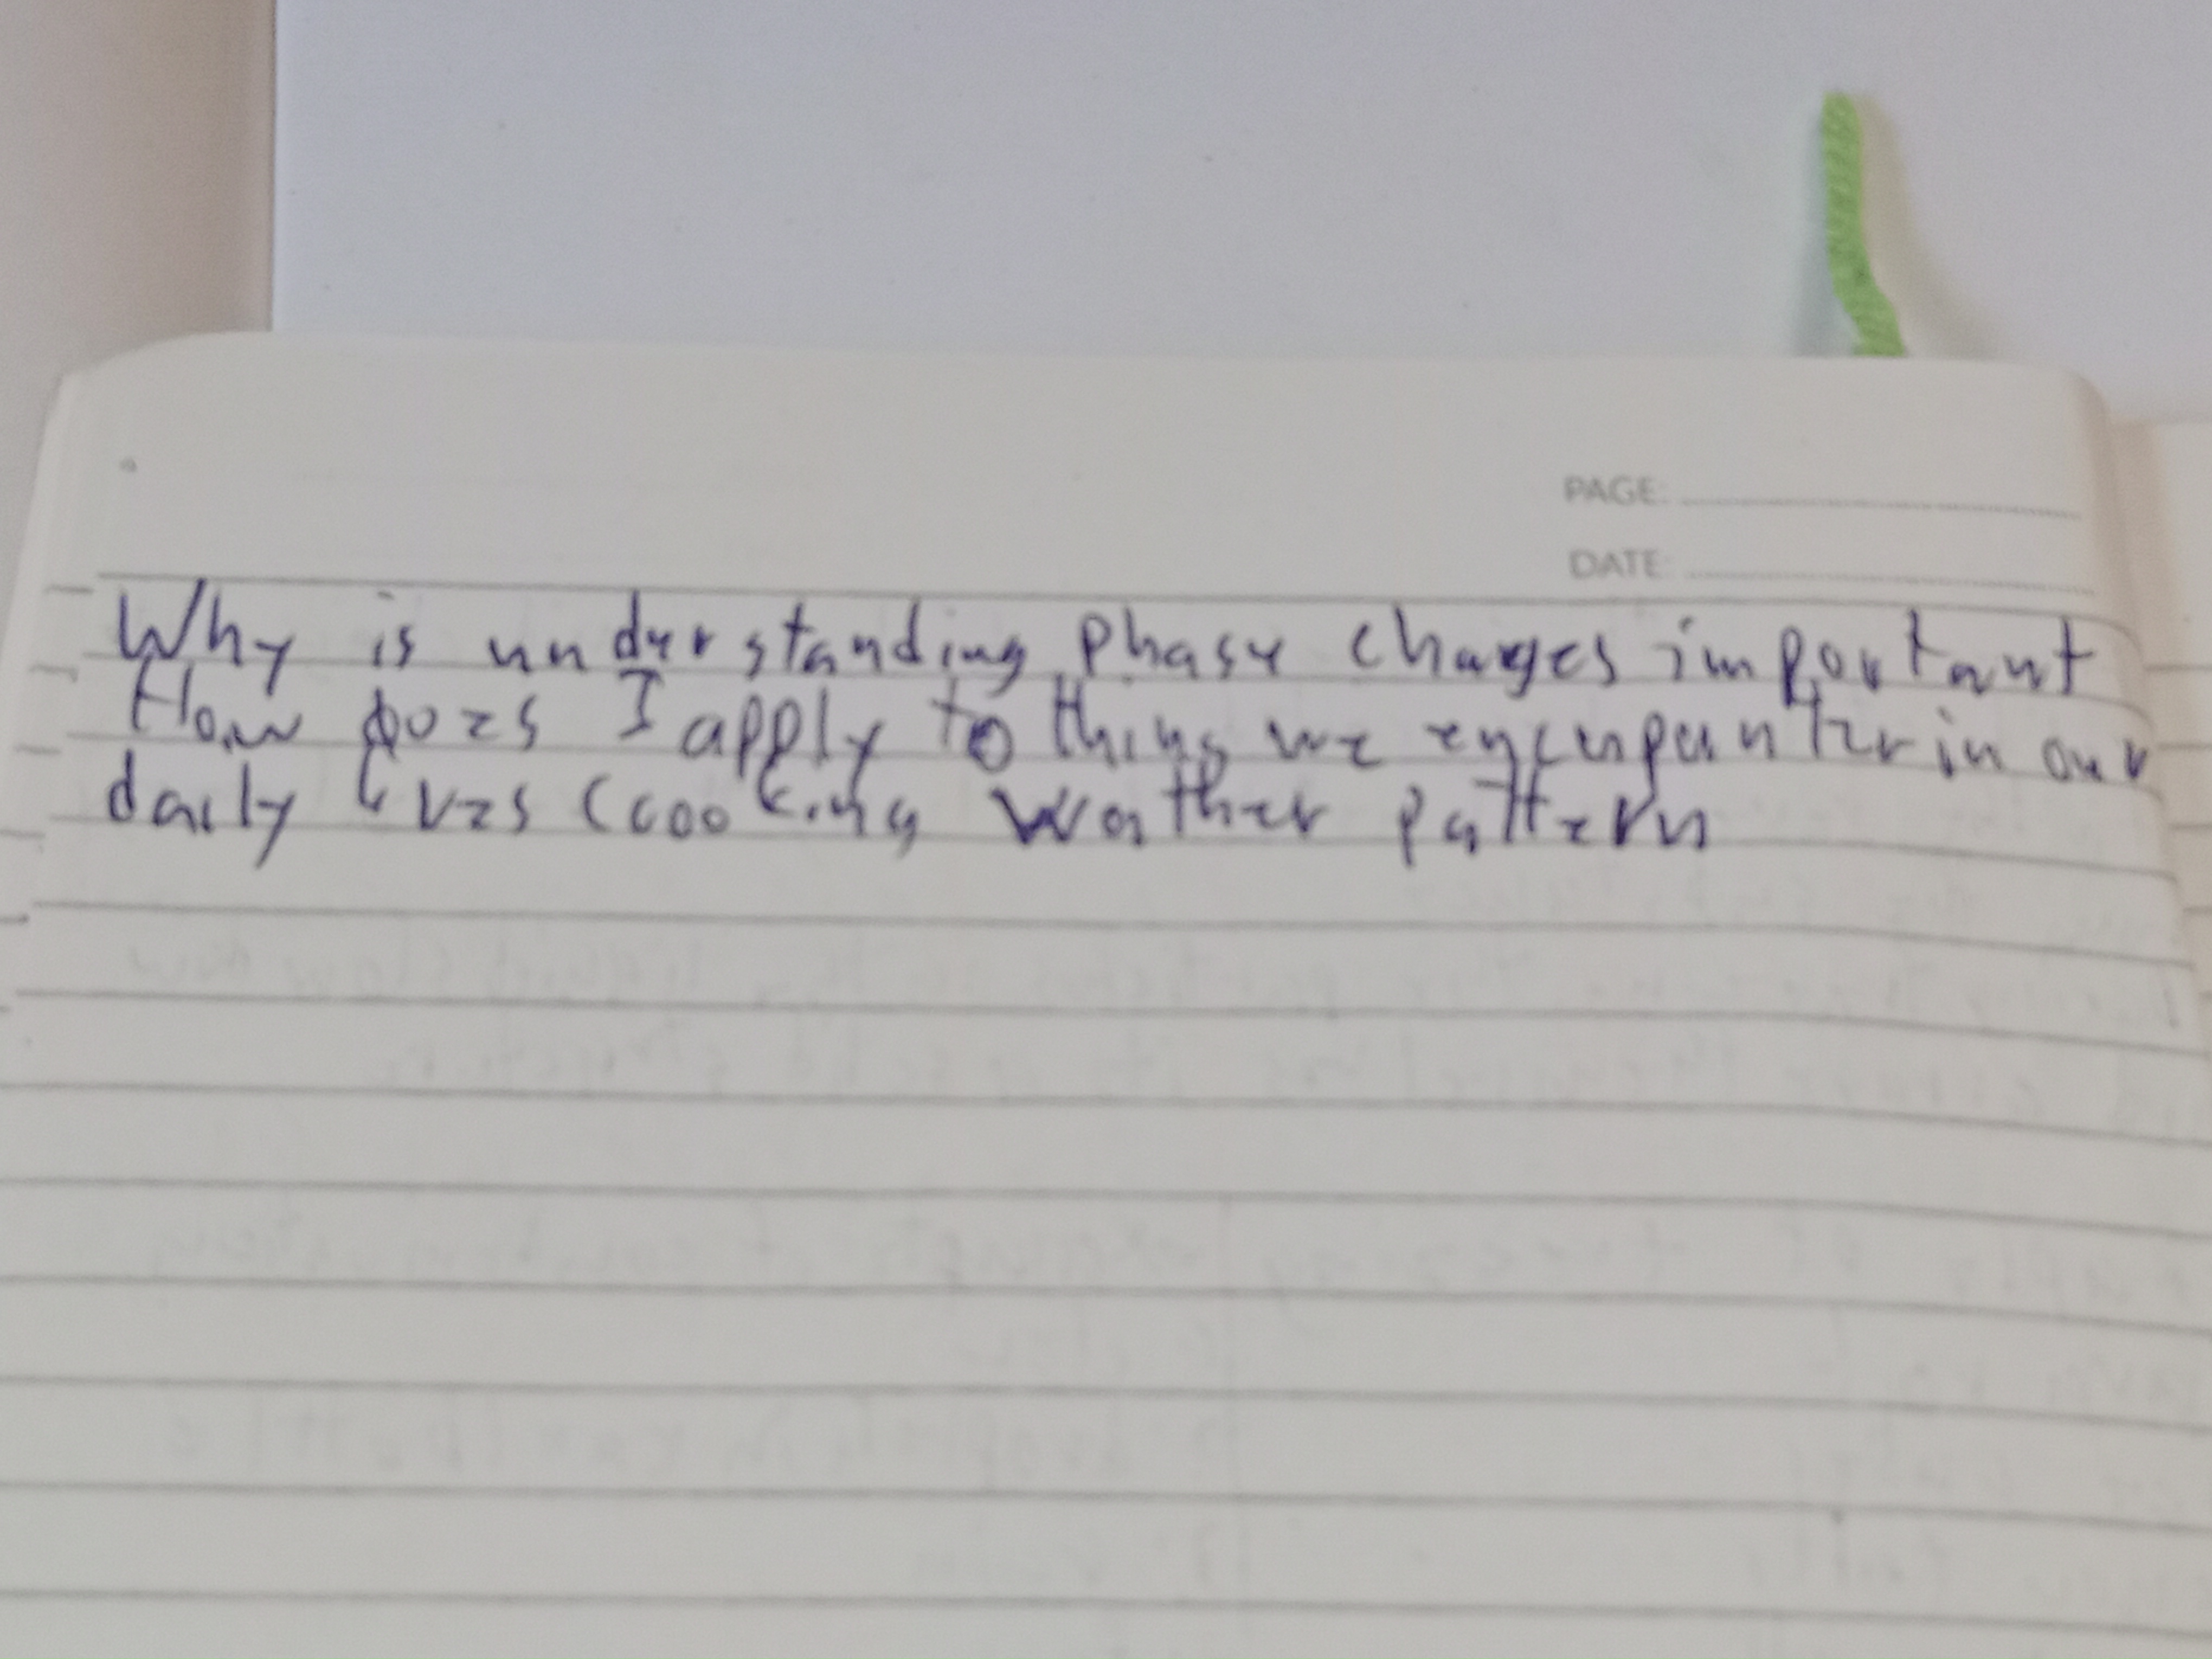 PAGE:
DATE:
Why is understanding phase changes important
How does I apply to things we encounter in our
daily lives (cooking weather pattern